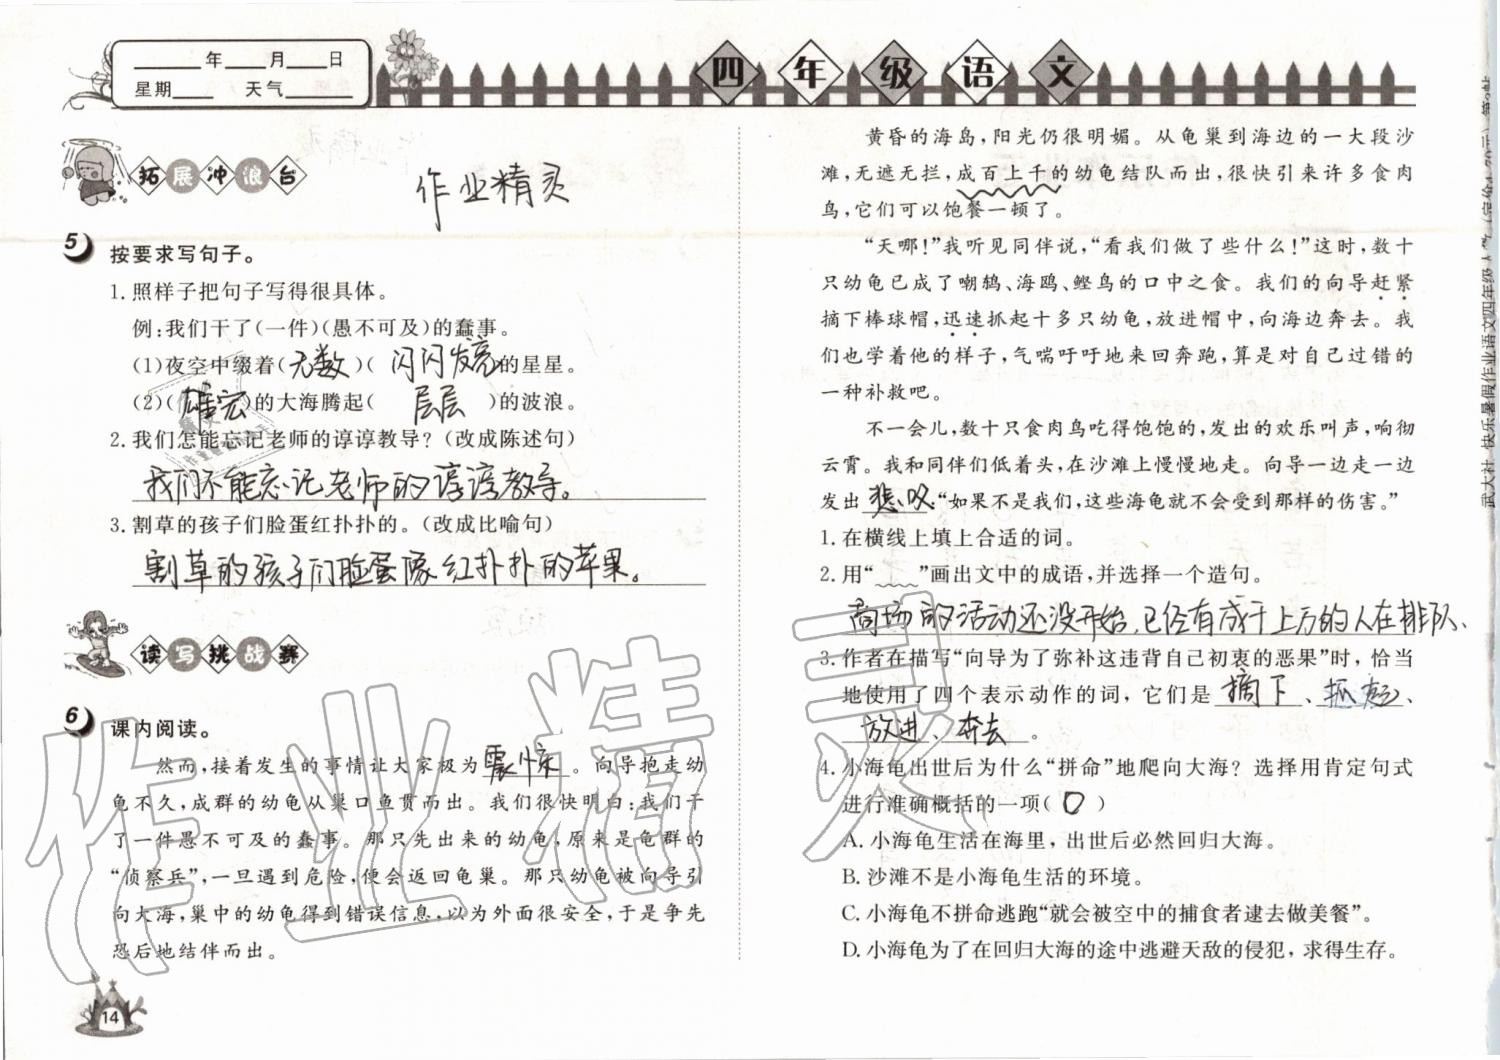 ____年____月____日
星期____ 天气________
四年级语文
拓展冲浪台
作业精灵
5 按要求写句子。
1.照样子把句子写得很具体。
例:我们干了(一件)(愚不可及)的蠢事。
(1)夜空中缀着(无数)(闪闪发亮)的星星。
(2)(雄宏)的大海腾起(层层)的波浪。
2.我们怎能忘记老师的谆谆教导?(改成陈述句)
我们不能忘记老师的谆谆教导。
3.割草的孩子们脸蛋红扑扑的。(改成比喻句)
割草的孩子们脸蛋像红扑扑的苹果。
读写挑战赛
6 课内阅读。
然而,接着发生的事情让大家极为震惊。向导抱走幼
龟不久,成群的幼龟从巢口鱼贯而出。我们很快明白:我们干
了一件愚不可及的蠢事。那只先出来的幼龟,原来是龟群的
“侦察兵”,一旦遇到危险,便会返回龟巢。那只幼龟被向导引
向大海,巢中的幼龟得到错误信息,以为外面很安全,于是争先
恐后地结伴而出。
14
黄昏的海岛,阳光仍很明媚。从龟巢到海边的一大段沙
滩,无遮无拦,成百上千的幼龟结队而出,很快引来许多食肉
鸟,它们可以饱餐一顿了。
“天哪!”我听见同伴说,“看我们做了些什么!”这时,数十
只幼龟已成了嘲鸫、海鸥、鲣鸟的口中之食。我们的向导赶紧
摘下棒球帽,迅速抓起十多只幼龟,放进帽中,向海边奔去。我
们也学着他的样子,气喘吁吁地来回奔跑,算是对自己过错的
一种补救吧。
不一会儿,数十只食肉鸟吃得饱饱的,发出的欢乐叫声,响彻
云霄。我和同伴们低着头,在沙滩上慢慢地走。向导一边走一边
发出悲叹:“如果不是我们,这些海龟就不会受到那样的伤害。”
1.在横线上填上合适的词。
2.用“﹏﹏”画出文中的成语,并选择一个造句。
商场的活动还没开始,已经有成千上万的人在排队、
3.作者在描写“向导为了弥补这违背自己初衷的恶果”时,恰当
地使用了四个表示动作的词,它们是摘下、抓起、
放进、奔去。
4.小海龟出世后为什么“拼命”地爬向大海?选择用肯定句式
进行准确概括的一项( D )
A.小海龟生活在海里,出世后必然回归大海。
B.沙滩不是小海龟生活的环境。
C.小海龟不拼命逃跑“就会被空中的捕食者逮去做美餐”。
D.小海龟为了在回归大海的途中逃避天敌的侵犯,求得生存。
作业精灵